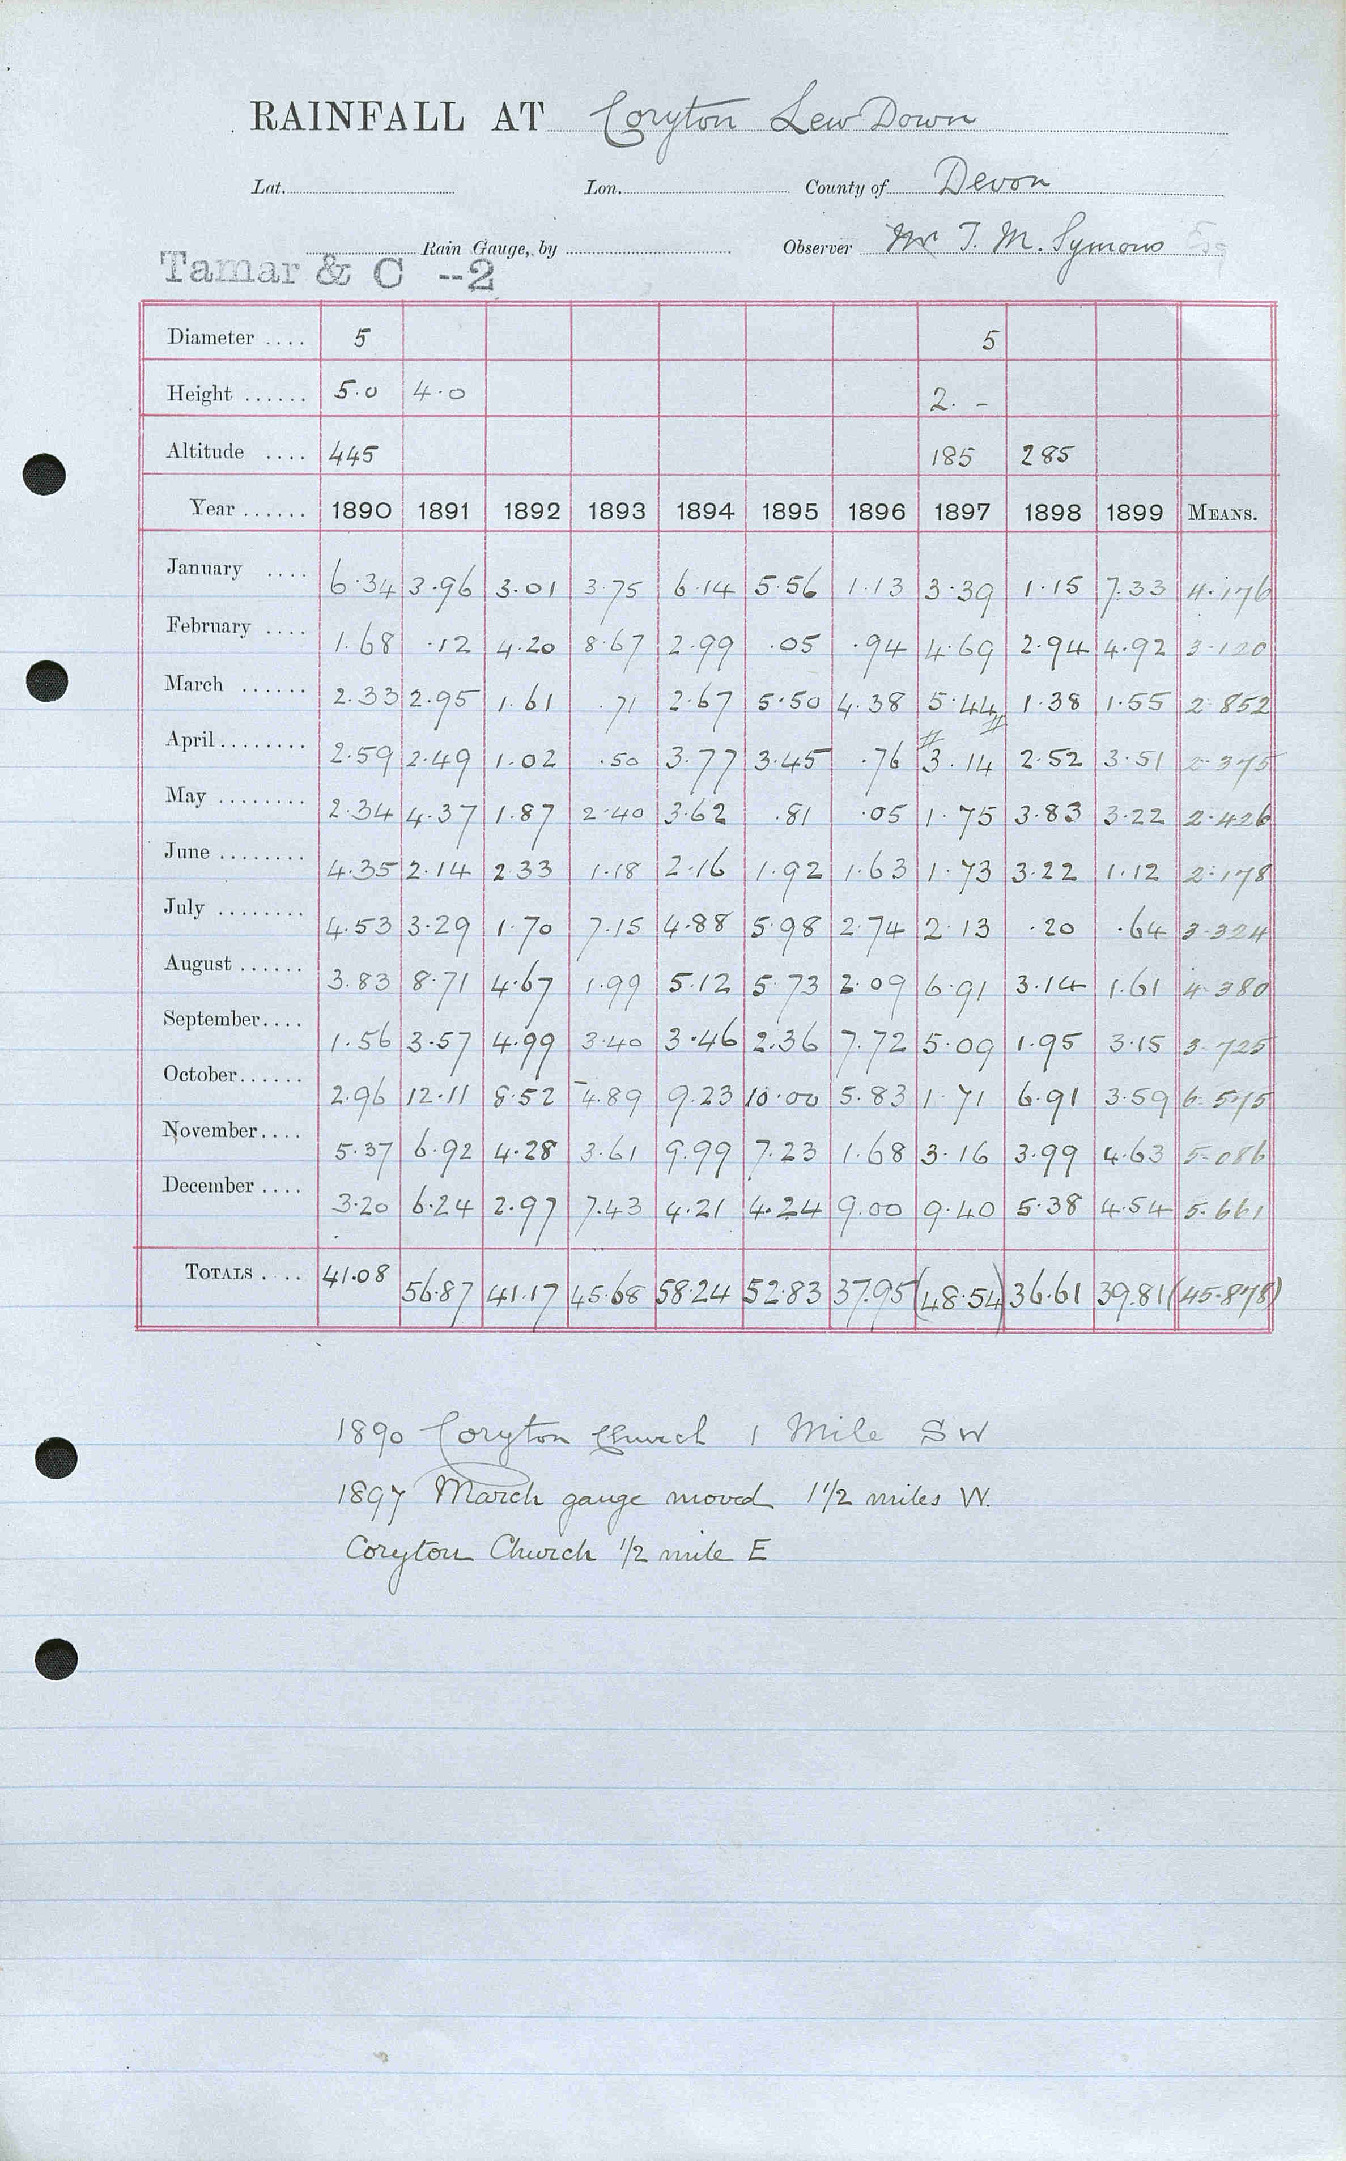 RAINFALL AT Coryton Lew Down
Lat. Lon. County of Devon
Rain Gauge, by Observer Mr T. M. Symons Esq
Tamar & C --2
Diameter .... 5 5
Height ...... 5.0 4.0 2. -
Altitude .... 445 185 285
Year ...... 1890 1891 1892 1893 1894 1895 1896 1897 1898 1899 MEANS.
January .... 6.34 3.96 3.01 3.75 6.14 5.56 1.13 3.39 1.15 7.33 4.176
February .... 1.68 .12 4.20 8.67 2.99 .05 .94 4.69 2.94 4.92 3.120
March ...... 2.33 2.95 1.61 .71 2.67 5.50 4.38 5.44 1.38 1.55 2.852
April........ 2.59 2.49 1.02 .50 3.77 3.45 .76 3.14 2.52 3.51 2.375
May ........ 2.34 4.37 1.87 2.40 3.62 .81 .05 1.75 3.83 3.22 2.426
June ........ 4.35 2.14 2.33 1.18 2.16 1.92 1.63 1.73 3.22 1.12 2.178
July ........ 4.53 3.29 1.70 7.15 4.88 5.98 2.74 2.13 .20 .64 3.324
August ...... 3.83 8.71 4.67 1.99 5.12 5.73 2.09 6.91 3.14 1.61 4.380
September.... 1.56 3.57 4.99 3.40 3.46 2.36 7.72 5.09 1.95 3.15 3.725
October...... 2.96 12.11 8.52 4.89 9.23 10.00 5.83 1.71 6.91 3.59 6.575
November.... 5.37 6.92 4.28 3.61 9.99 7.23 1.68 3.16 3.99 4.63 5.086
December .... 3.20 6.24 2.97 7.43 4.21 4.24 9.00 9.40 5.38 4.54 5.661
TOTALS .... 41.08 56.87 41.17 45.68 58.24 52.83 37.95 (48.54) 36.61 39.81 (45.878)
1890 Coryton Church 1 Mile SW
1897 March gauge moved 1 1/2 miles W.
Coryton Church 1/2 mile E